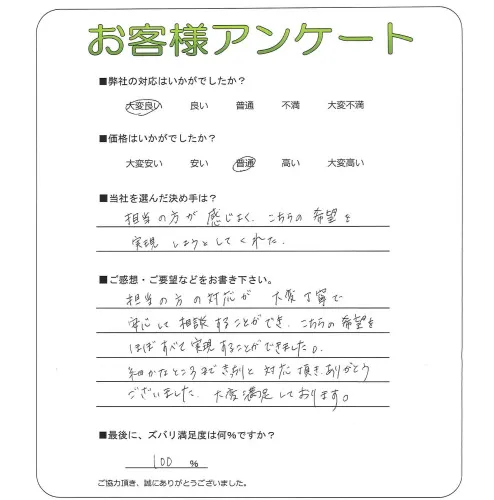 お客様アンケート
■弊社の対応はいかがでしたか？
大変良い 良い 普通 不満 大変不満
■価格はいかがでしたか？
大変安い 安い 普通 高い 大変高い
■当社を選んだ決め手は？
担当の方が感じよく、こちらの希望を
実現しようとしてくれた.
■ご感想・ご要望などをお書き下さい。
担当の方の対応が大変丁寧で
安心して相談することができ、こちらの希望を
ほぼすべて実現することができました。
細かなところまできちんと対応頂きありがとう
ございました. 大変満足しております。
■最後に、ズバリ満足度は何%ですか？
100 %
ご協力頂き、誠にありがとうございました。